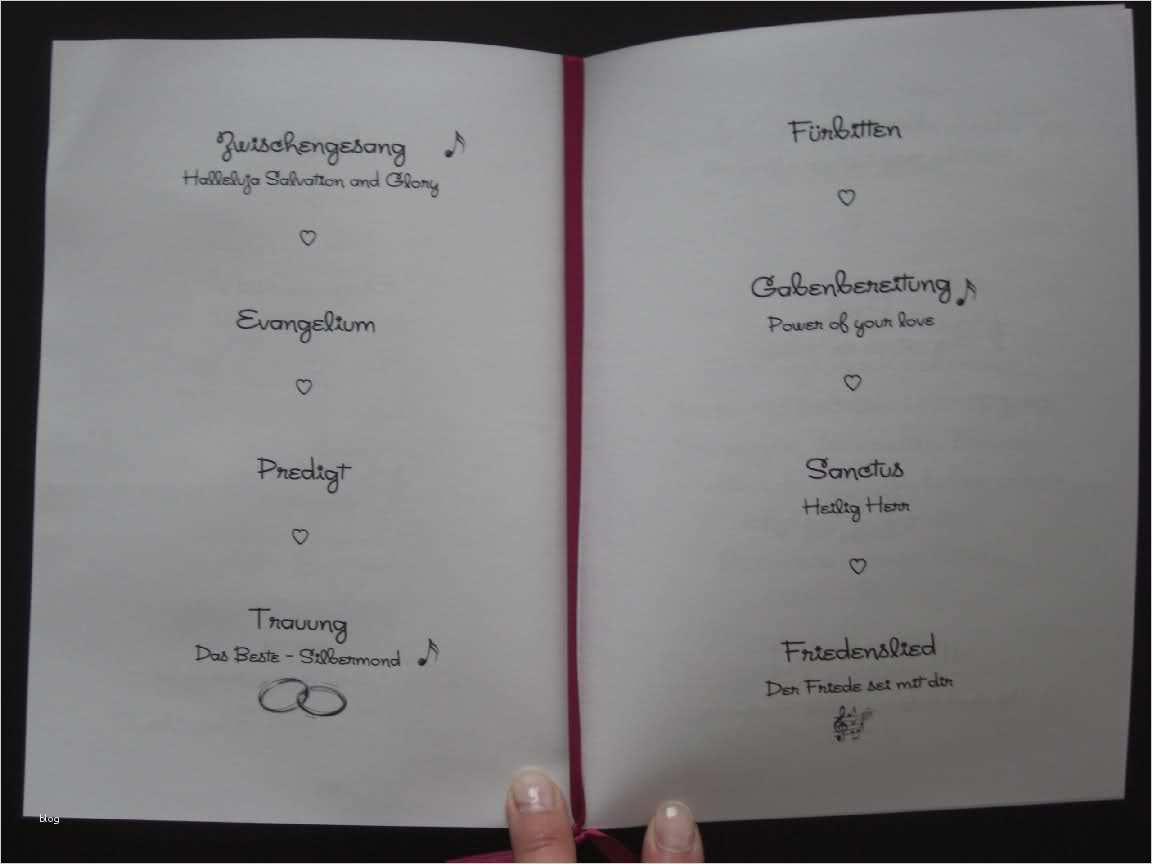 Zwischengesang
Halleluja Salvation and Glory
Evangelium
Predigt
Trauung
Das Beste - Silbermond
Fürbitten
Gabenbereitung
Power of your love
Sanctus
Heilig Herr
Friedenslied
Der Friede sei mit dir
blog